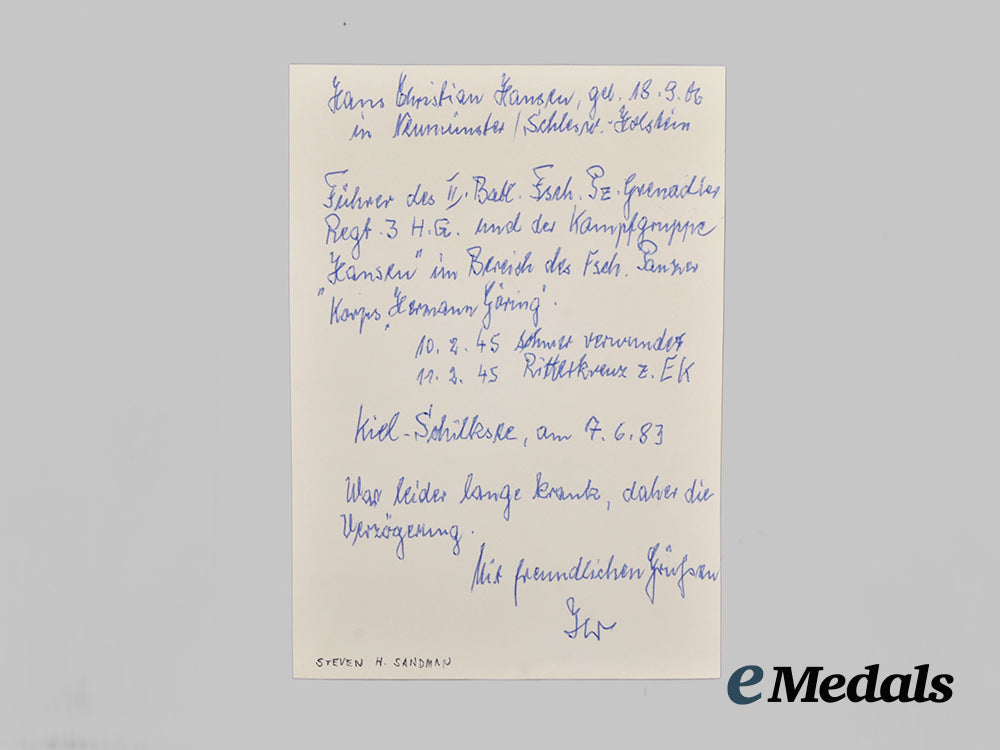 Hans Christian Hansen, geb. 18.9.06
in Neumünster/Schlesw.-Holstein
Führer des II. Batl. Fsch. Pz. Grenadier
Regt. 3 H.G. und der Kampfgruppe
"Hansen" im Bereich des Fsch. Panzer
"Korps "Hermann Göring".
10. 2. 45 schwer verwundet
11. 2. 45 Ritterkreuz z. EK
Kiel-Schilksee, am 7.6.83
War leider lange krank, daher die
Verzögerung.
Mit freundlichen Grüßen
STEVEN H. SANDMAN
eMedals